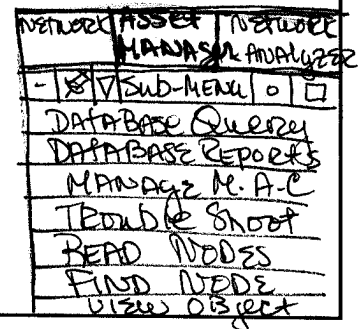 NETWORK ASSET MANAGER NETWORK ANALYZER
- SUB-MENU
DATABASE QUERY
DATABASE REPORTS
MANAGE M.A-C
TROUBLE SHOOT
READ NODES
FIND NODE
VIEW OBJECT